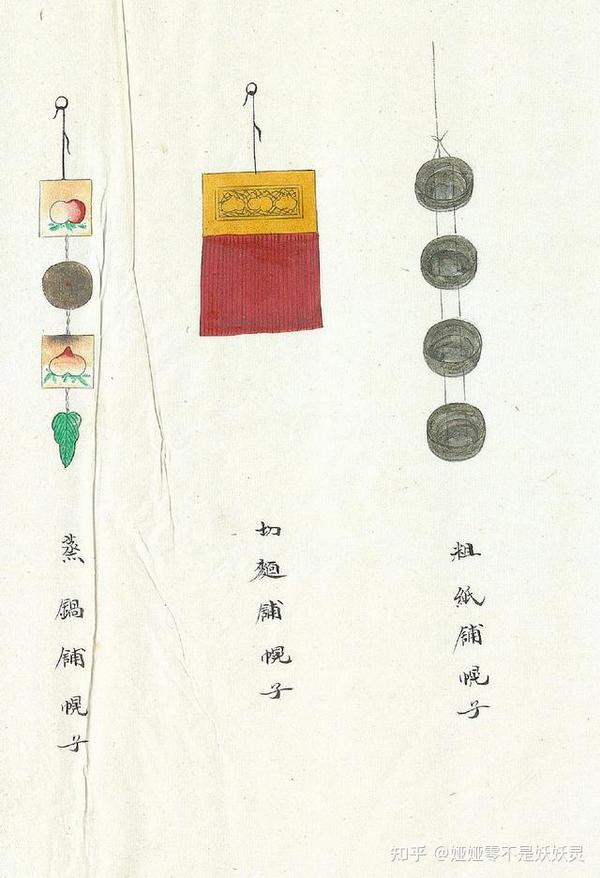 粗紙舖幌子
切麵舖幌子
蒸鍋舖幌子
知乎 @娅娅零不是妖妖灵